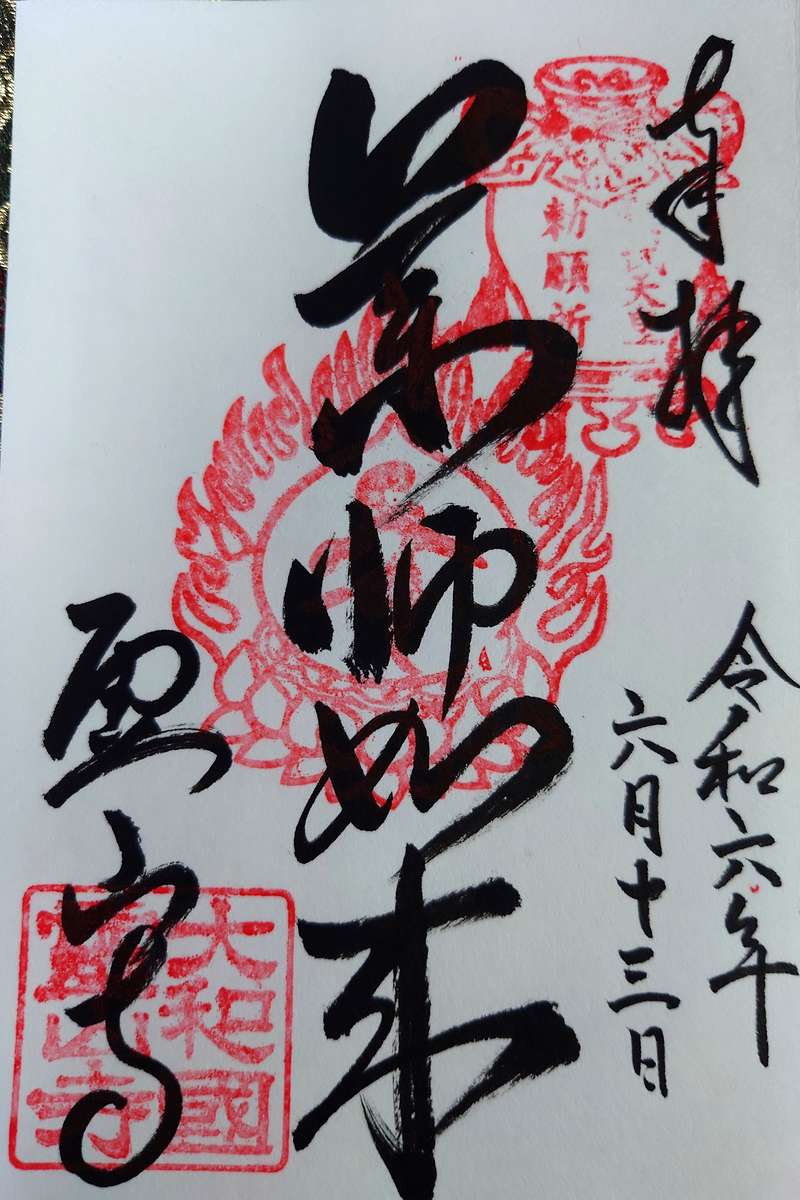 奉拝
令和六年
六月十三日
勅願所
薬師如来
霊山寺
大和國
霊山寺